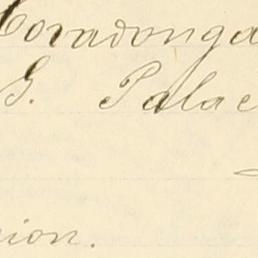 Covadonga
G. Palac
ion.